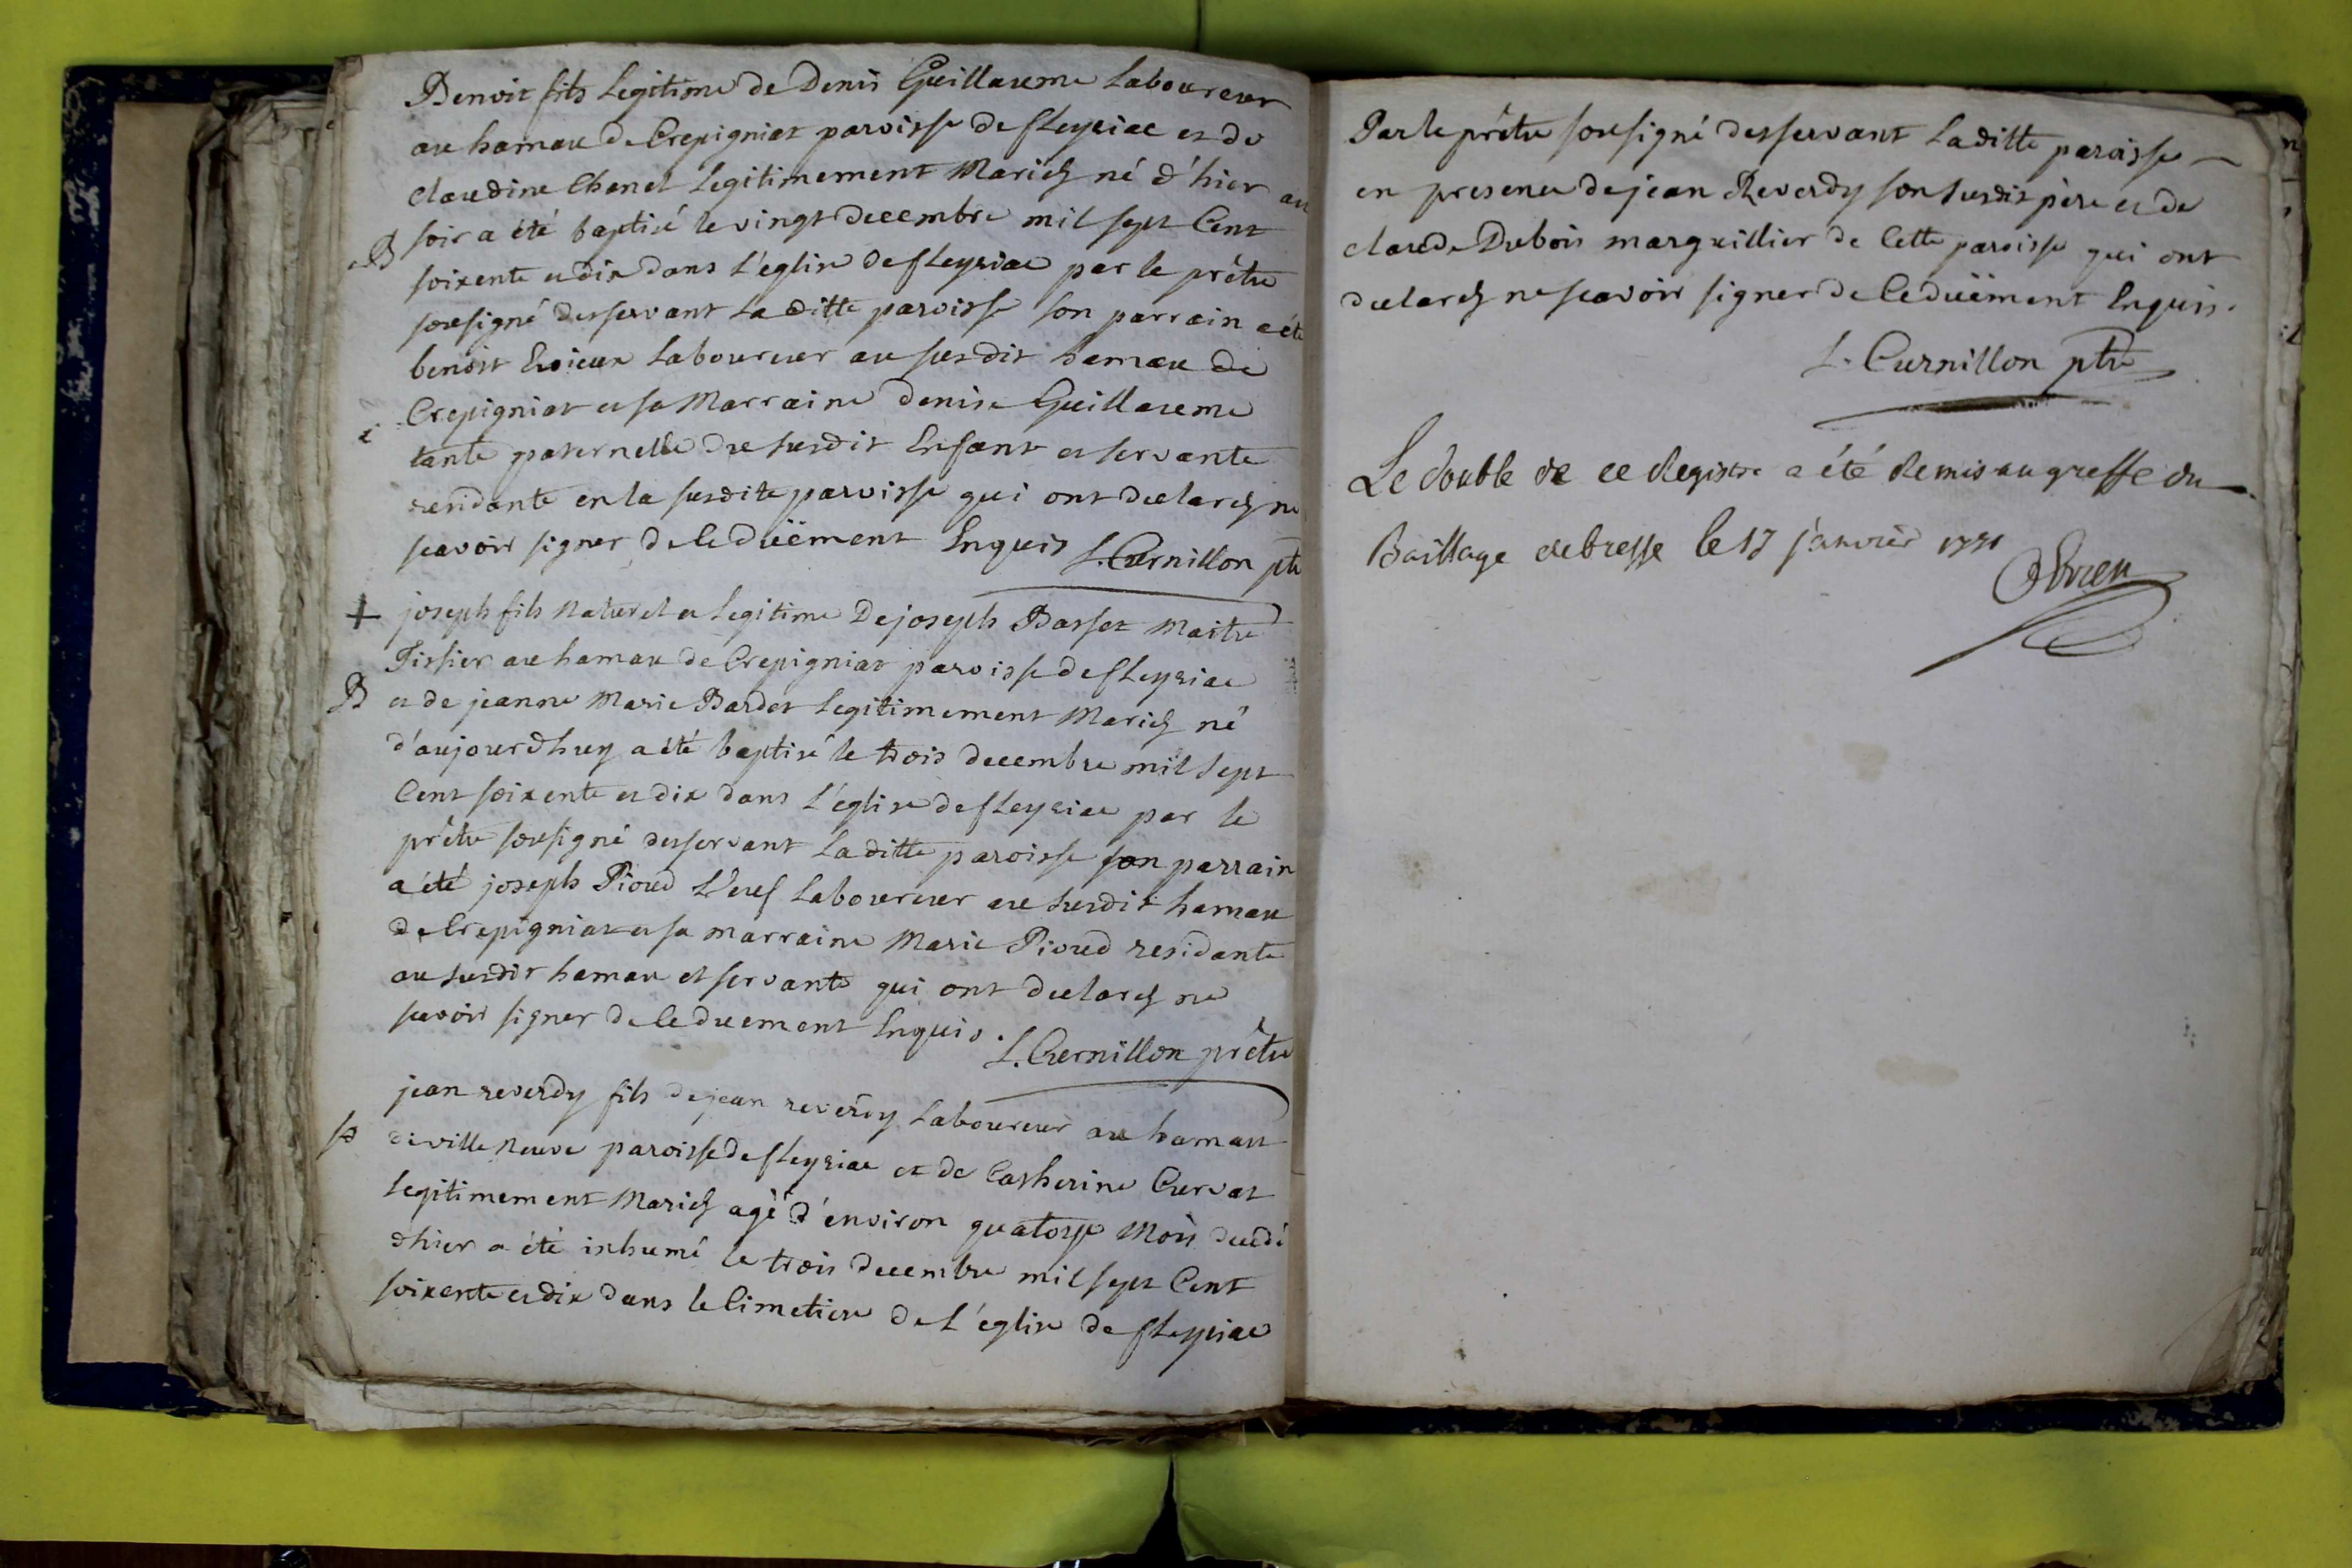 Benoit fils Legitime de Denis Guillaume Laboureur
au hamau de Crepigniat paroisse de fleyriac et de
claudine Chanel Legitimement Mariés né d'hier au
B soir a été baptisé le vingt decembre mil sept Cent
soixente et dix dans l'eglise de fleyriac par le prêtre
sousigné desservant La ditte paroisse son parrain a été
benoit Laboureur au susdit hamau de
Crepigniat et sa Marraine denise Guillaume
tante paternelle du susdit Enfant et servante
residante en la susdite paroisse qui ont declarés ne
scavoir signer de Ce duëment Enquis L. Curnillon ptre
+ joseph fils Naturel et Legitime De joseph Basset Maitre
Tissier au hamau de Crepigniat paroisse de fleyriac
B et de jeanne Marie Bardet Legitimement Mariés né
d'aujourdhuy a été baptisé le trois decembre mil sept
Cent soixente et dix dans l'église de fleyriac par le
prêtre sousigné desservant La ditte paroisse son parrain
a été joseph Pioud Veuf Laboureur au susdit hamau
de Crepigniat et sa marraine Marie Pioud residante
au susdit hamau et servante qui ont declarés ne
scavoir signer de Ce duement Enquis.
L. Curnillon prêtre
jean reverdy fils de jean reverdy Laboureur au hamau
de ville Neuve paroisse de fleyriac et de Catherine Curvat
Legitimement Mariés agé d'environ quatorze Mois decedé
dhier a été inhumé le trois decembre mil sept Cent
soixente et dix dans le Cimetiere de L'église de fleyriac
Par le prêtre sousigné desservant La ditte paroisse
en presence de jean Reverdy son susdit père et de
claude Dubois marguillier de Cette paroisse qui ont
declarés ne scavoir signer de Ce duëment Enquis.
L. Curnillon ptre
Le double de ce Registre a été Remis au greffe du
Baillage de bresse le 17 janvier 1771